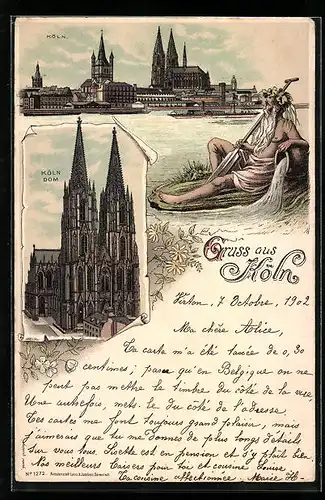 KÖLN.
KÖLN
DOM
Gruss aus
Köln
Virton, 7 Octobre, 1902
Ma chère Alice,
Ta carte m'a été taxée de 0,30
centimes; parce qu'en Belgique on ne
peut pas mettre le timbre du côté de la vue.
Une autre fois, mets-le du côté de l'adresse.
Tes cartes me font toujours grand plaisir, mais
j'aimerais que tu me donnes de plus longs détails
sur vous tous. Lisette est en pension et s'y plait bien
Nos meilleurs baisers pour toi et cousine Louise.
Ta cousine affectionnée, Marie H-
No 1272.